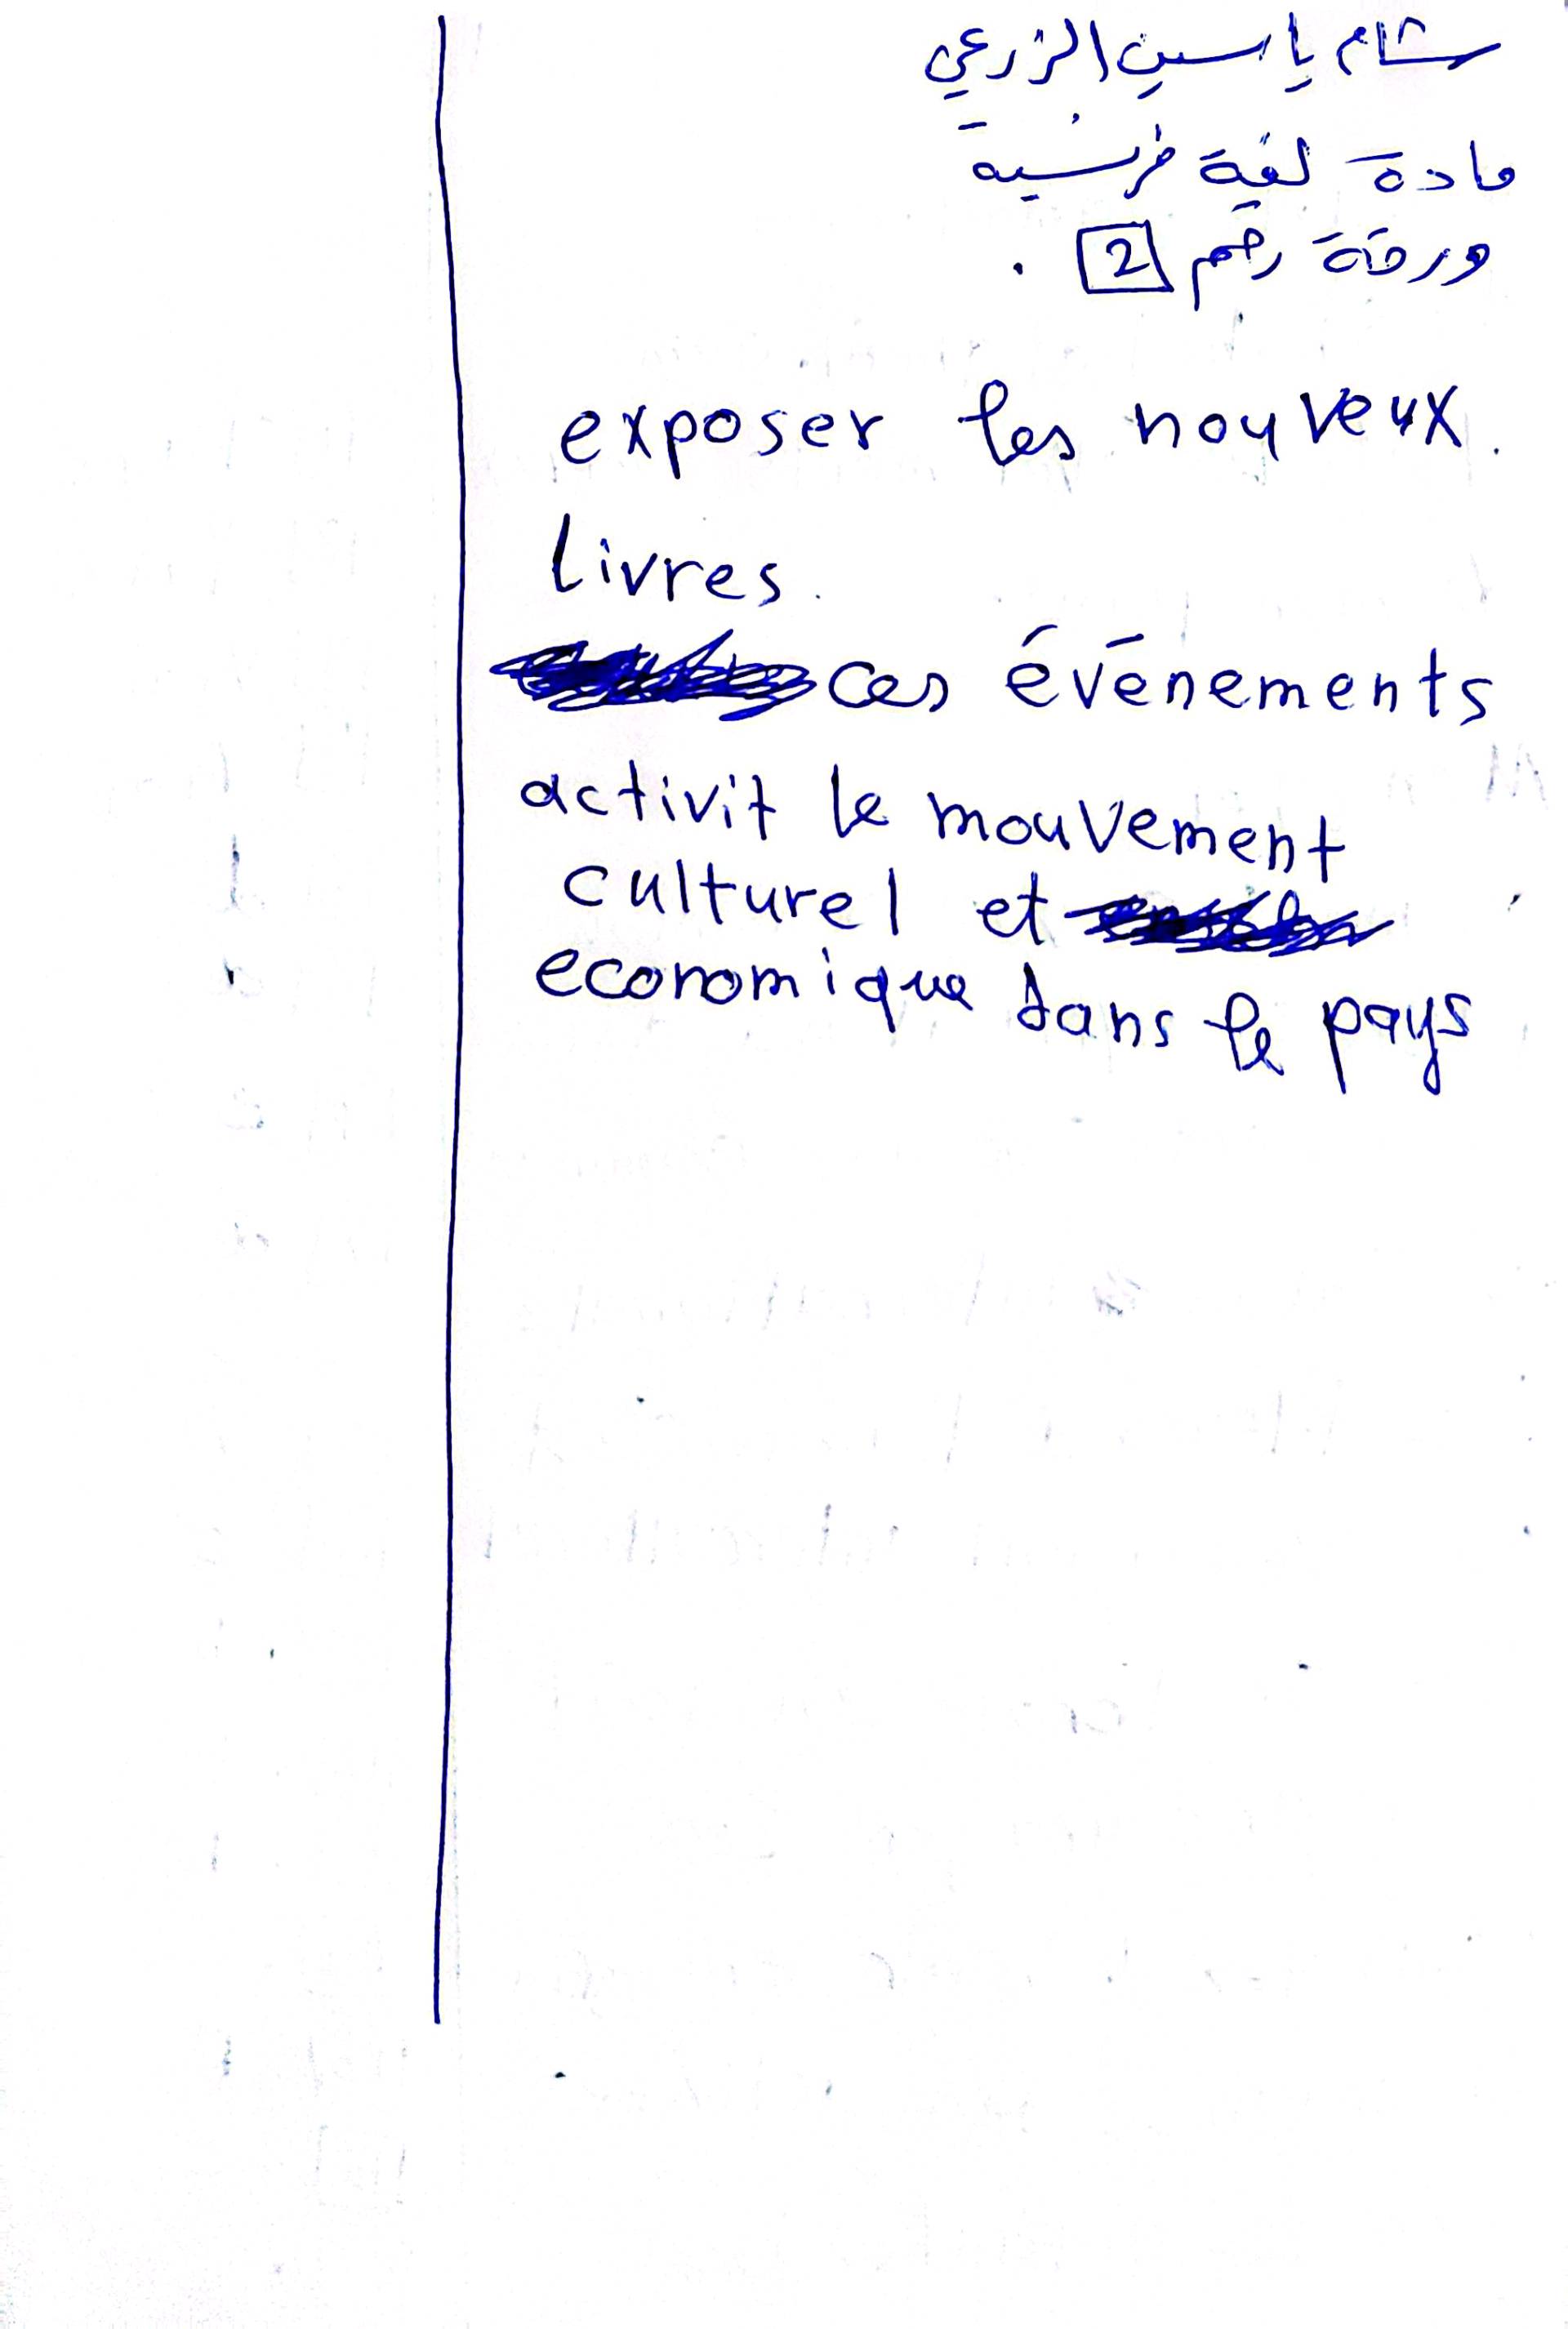 شام ياسين الزرعي
مادة لغة فرنسية
ورقة رقم 2 .
exposer les nouveux.
livres.
ces événements
activit le mouvement
culturel et
economique dans le pays